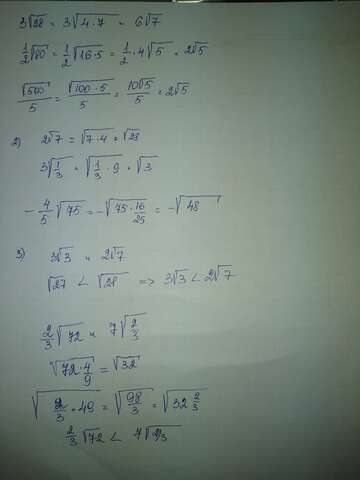 3√28 = 3√4·7 = 6√7
1/2√80 = 1/2√16·5 = 1/2·4√5 = 2√5
√500/5 = √100·5/5 = 10√5/5 = 2√5
2) 2√7 = √7·4 = √28
3√1/3 = √1/3·9 = √3
-4/5√75 = -√75·16/25 = -√48
3) 3√3 и 2√7
√27 < √28 => 3√3 < 2√7
2/3√72 и 7√2/3
√72·4/9 = √32
√2/3·49 = √98/3 = √32 2/3
2/3√72 < 7√2/3